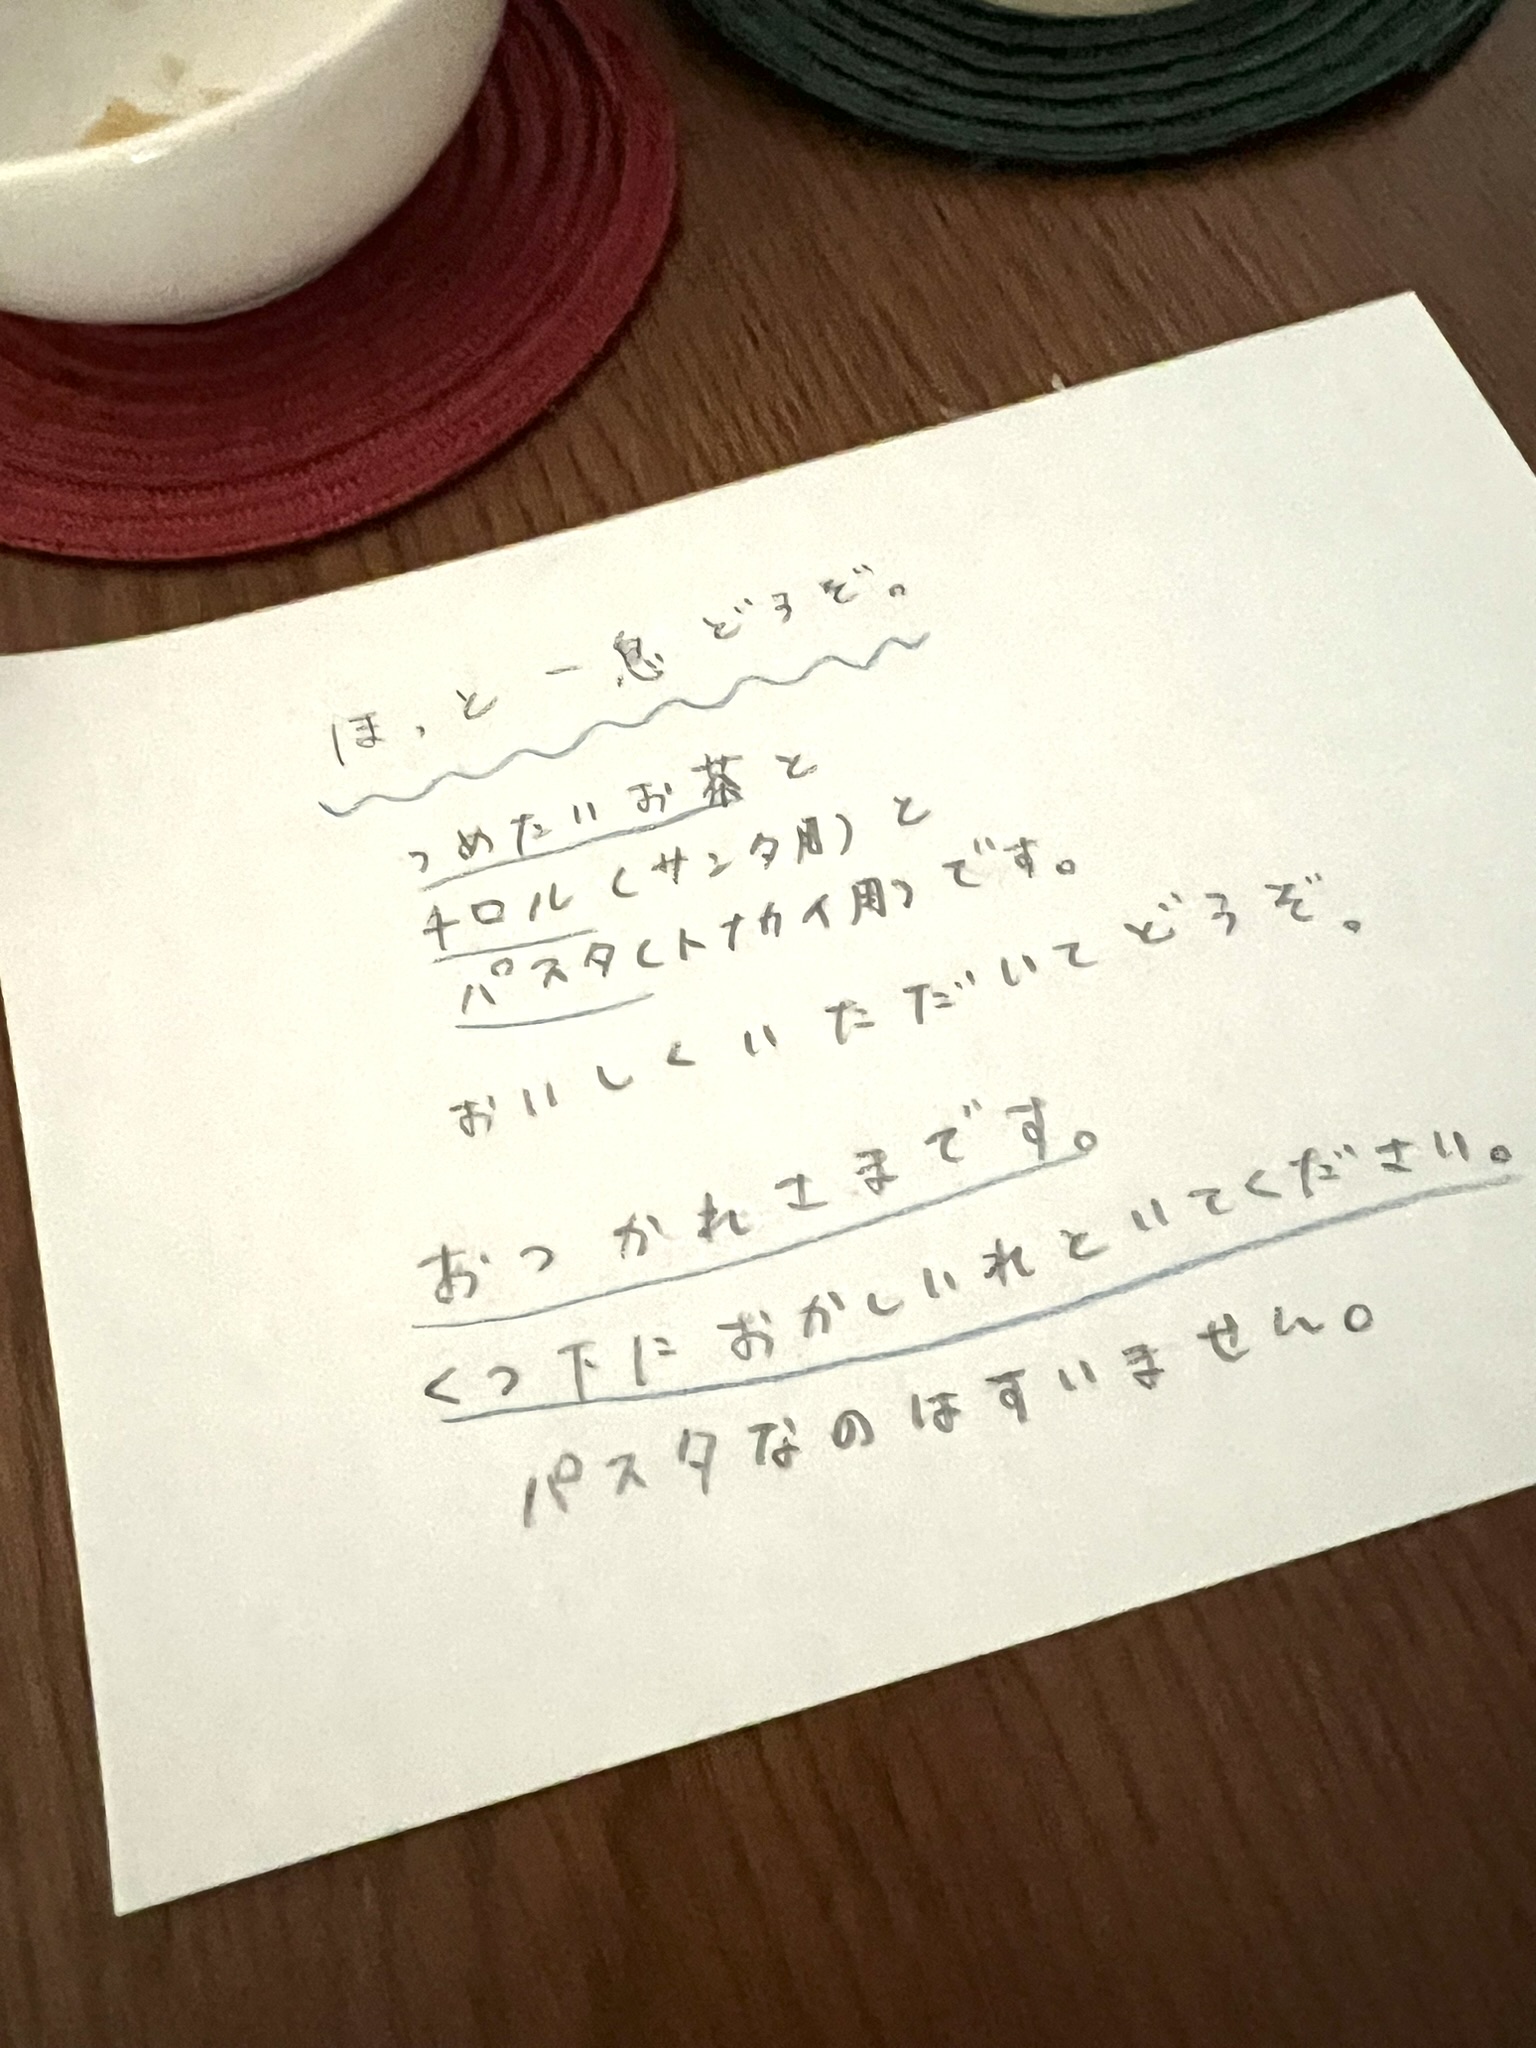 ほっと一息どうぞ。
つめたいお茶と
チロル(サンタ用)と
パスタ(トナカイ用)です。
おいしくいただいてどうぞ。
おつかれさまです。
くつ下におかしいれといてください。
パスタなのはすいません。